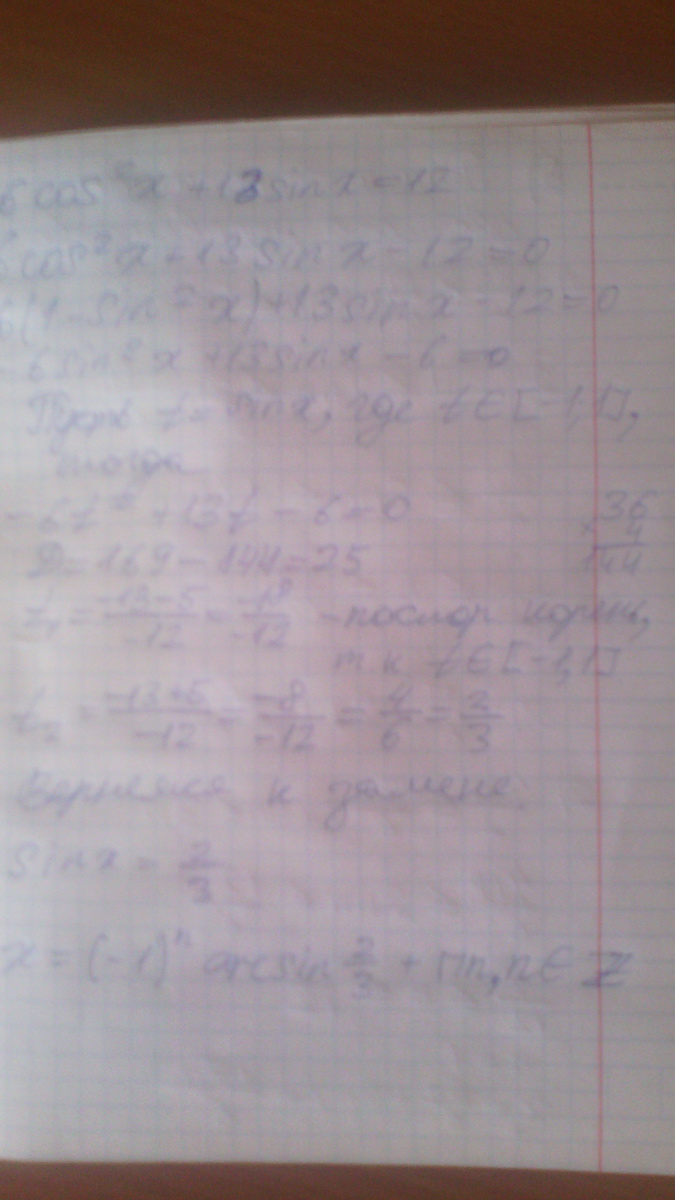 6cos²x + 13sinx = 12
6cos²x + 13sinx - 12 = 0
6(1 - sin²x) + 13sinx - 12 = 0
- 6sin²x + 13sinx - 6 = 0
Пусть t = sinx, где t ∈ [-1,1],
тогда
- 6t² + 13t - 6 = 0
36
× 4
144
D = 169 - 144 = 25
t₁ = -13-5/-12 = -18/-12 - постор корень,
т к t ∈ [-1,1]
t₂ = -13+5/-12 = -8/-12 = 4/6 = 2/3
Вернемся к замене
Sinx = 2/3
x = (-1)ⁿ arcsin 2/3 + πn, n ∈ Z